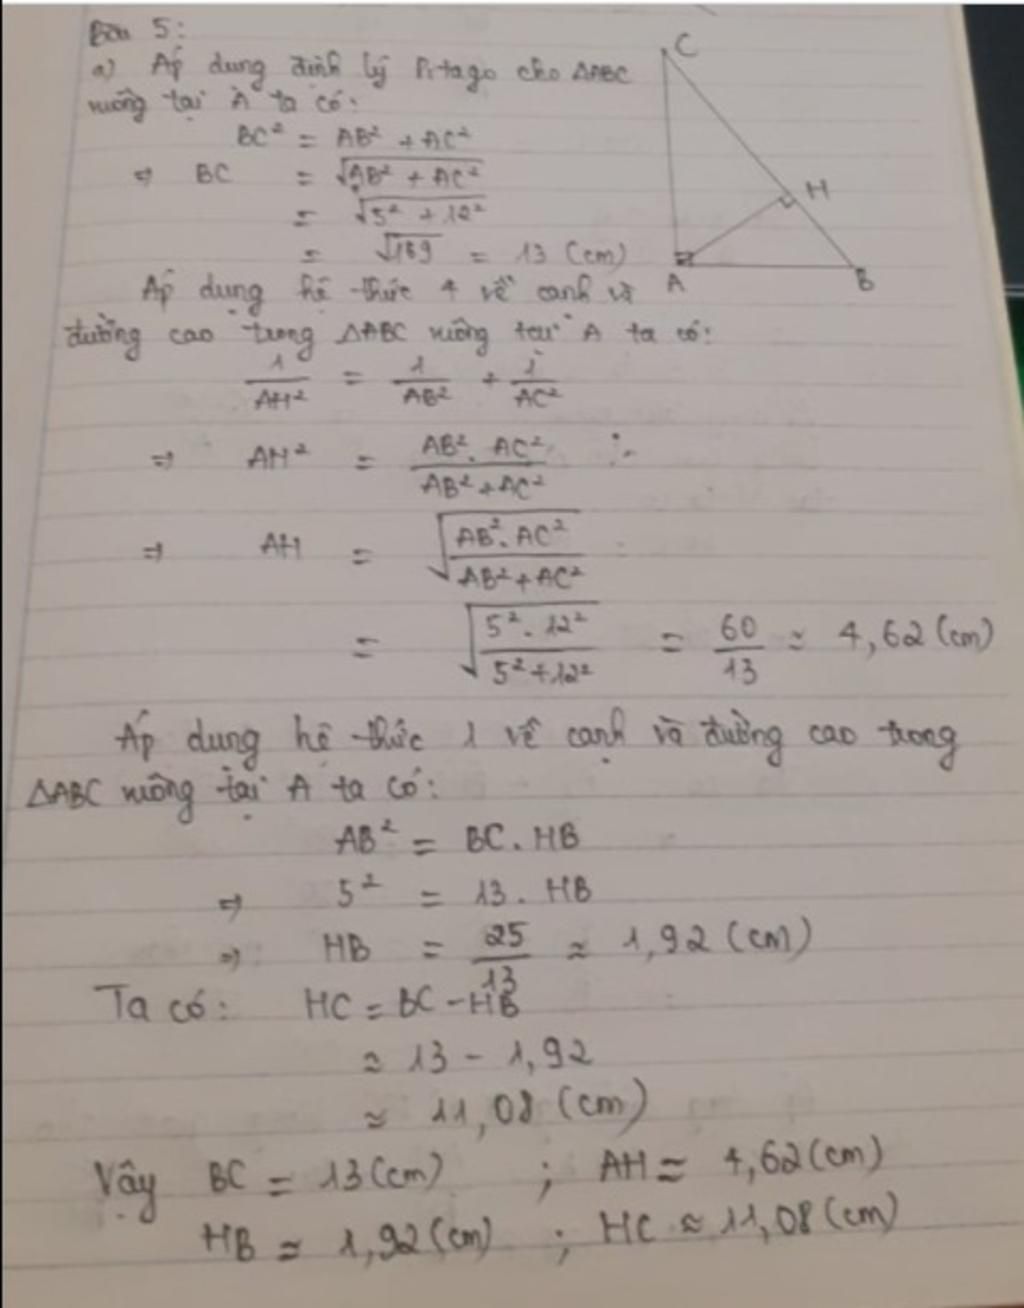 Bài 5:
a) Áp dụng định lý Pitago cho ΔABC
vuông tại A ta có:
BC² = AB² + AC²
⇒ BC = √(AB² + AC²)
= √(5² + 12²)
= √169 = 13 (cm)
C
H
A
B
Áp dụng hệ thức 4 về cạnh và
đường cao trong ΔABC vuông tại A ta có:
1/AH² = 1/AB² + 1/AC²
⇒ AH² = (AB². AC²)/(AB² + AC²)
⇒ AH = √((AB². AC²)/(AB² + AC²))
= √((5². 12²)/(5² + 12²)) = 60/13 ≈ 4,62 (cm)
Áp dụng hệ thức 1 về cạnh và đường cao trong
ΔABC vuông tại A ta có:
AB² = BC. HB
⇒ 5² = 13. HB
⇒ HB = 25/13 ≈ 1,92 (cm)
Ta có: HC = BC - HB
≈ 13 - 1,92
≈ 11,08 (cm)
Vậy BC = 13 (cm) ; AH ≈ 4,62 (cm)
HB ≈ 1,92 (cm) ; HC ≈ 11,08 (cm)